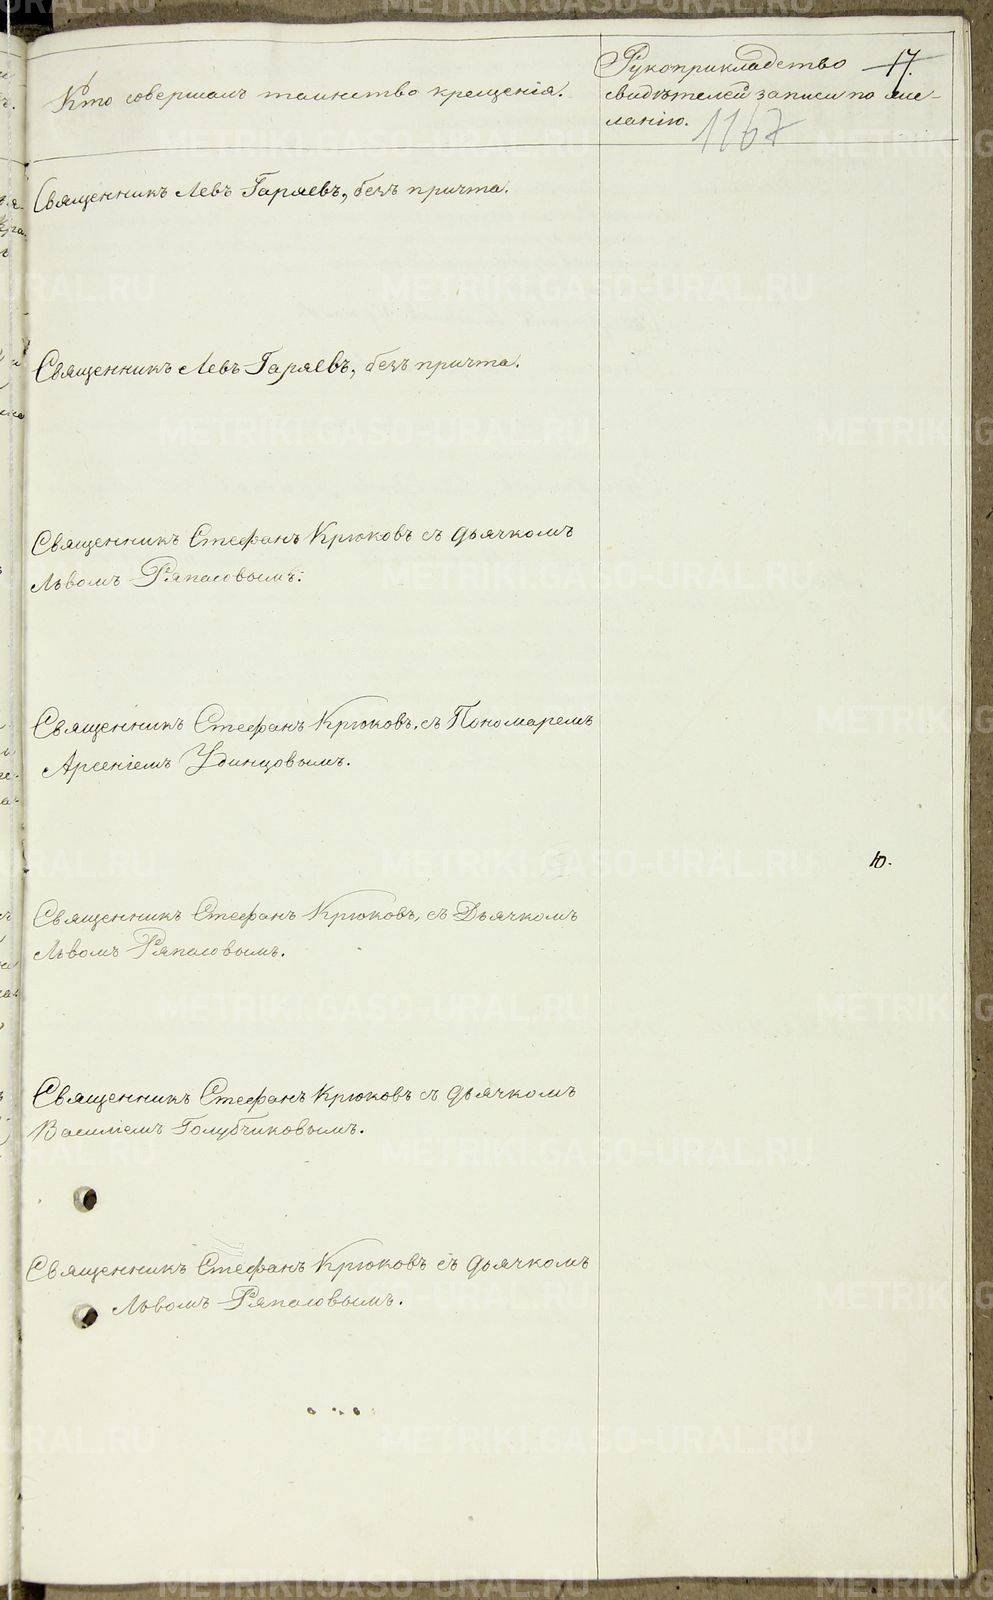 Кто совершалъ таинство крещенія.
Рукоприкладство
свидѣтелей записи по же-
ланію.
17.
1167
Священникъ Левъ Гаряевъ, безъ причта.
Священникъ Левъ Гаряевъ, безъ причта.
Священникъ Стефанъ Крюковъ съ дьячкомъ
Львомъ Ряпасовымъ.
Священникъ Стефанъ Крюковъ, съ Пономаремъ
Арсеніемъ Удинцовымъ.
Ю.
Священникъ Стефанъ Крюковъ, съ Дьячкомъ
Львомъ Ряпасовымъ.
Священникъ Стефанъ Крюковъ съ дьячкомъ
Василіемъ Голубчиковымъ.
Священникъ Стефанъ Крюковъ съ дьячкомъ
Львомъ Ряпасовымъ.
METRIKI.GASO-URAL.RU